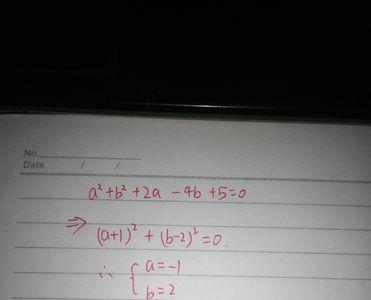 No.
Date / /
a²+b²+2a-4b+5=0
⇒ (a+1)²+(b-2)²=0.
∴ { a=-1
b=2